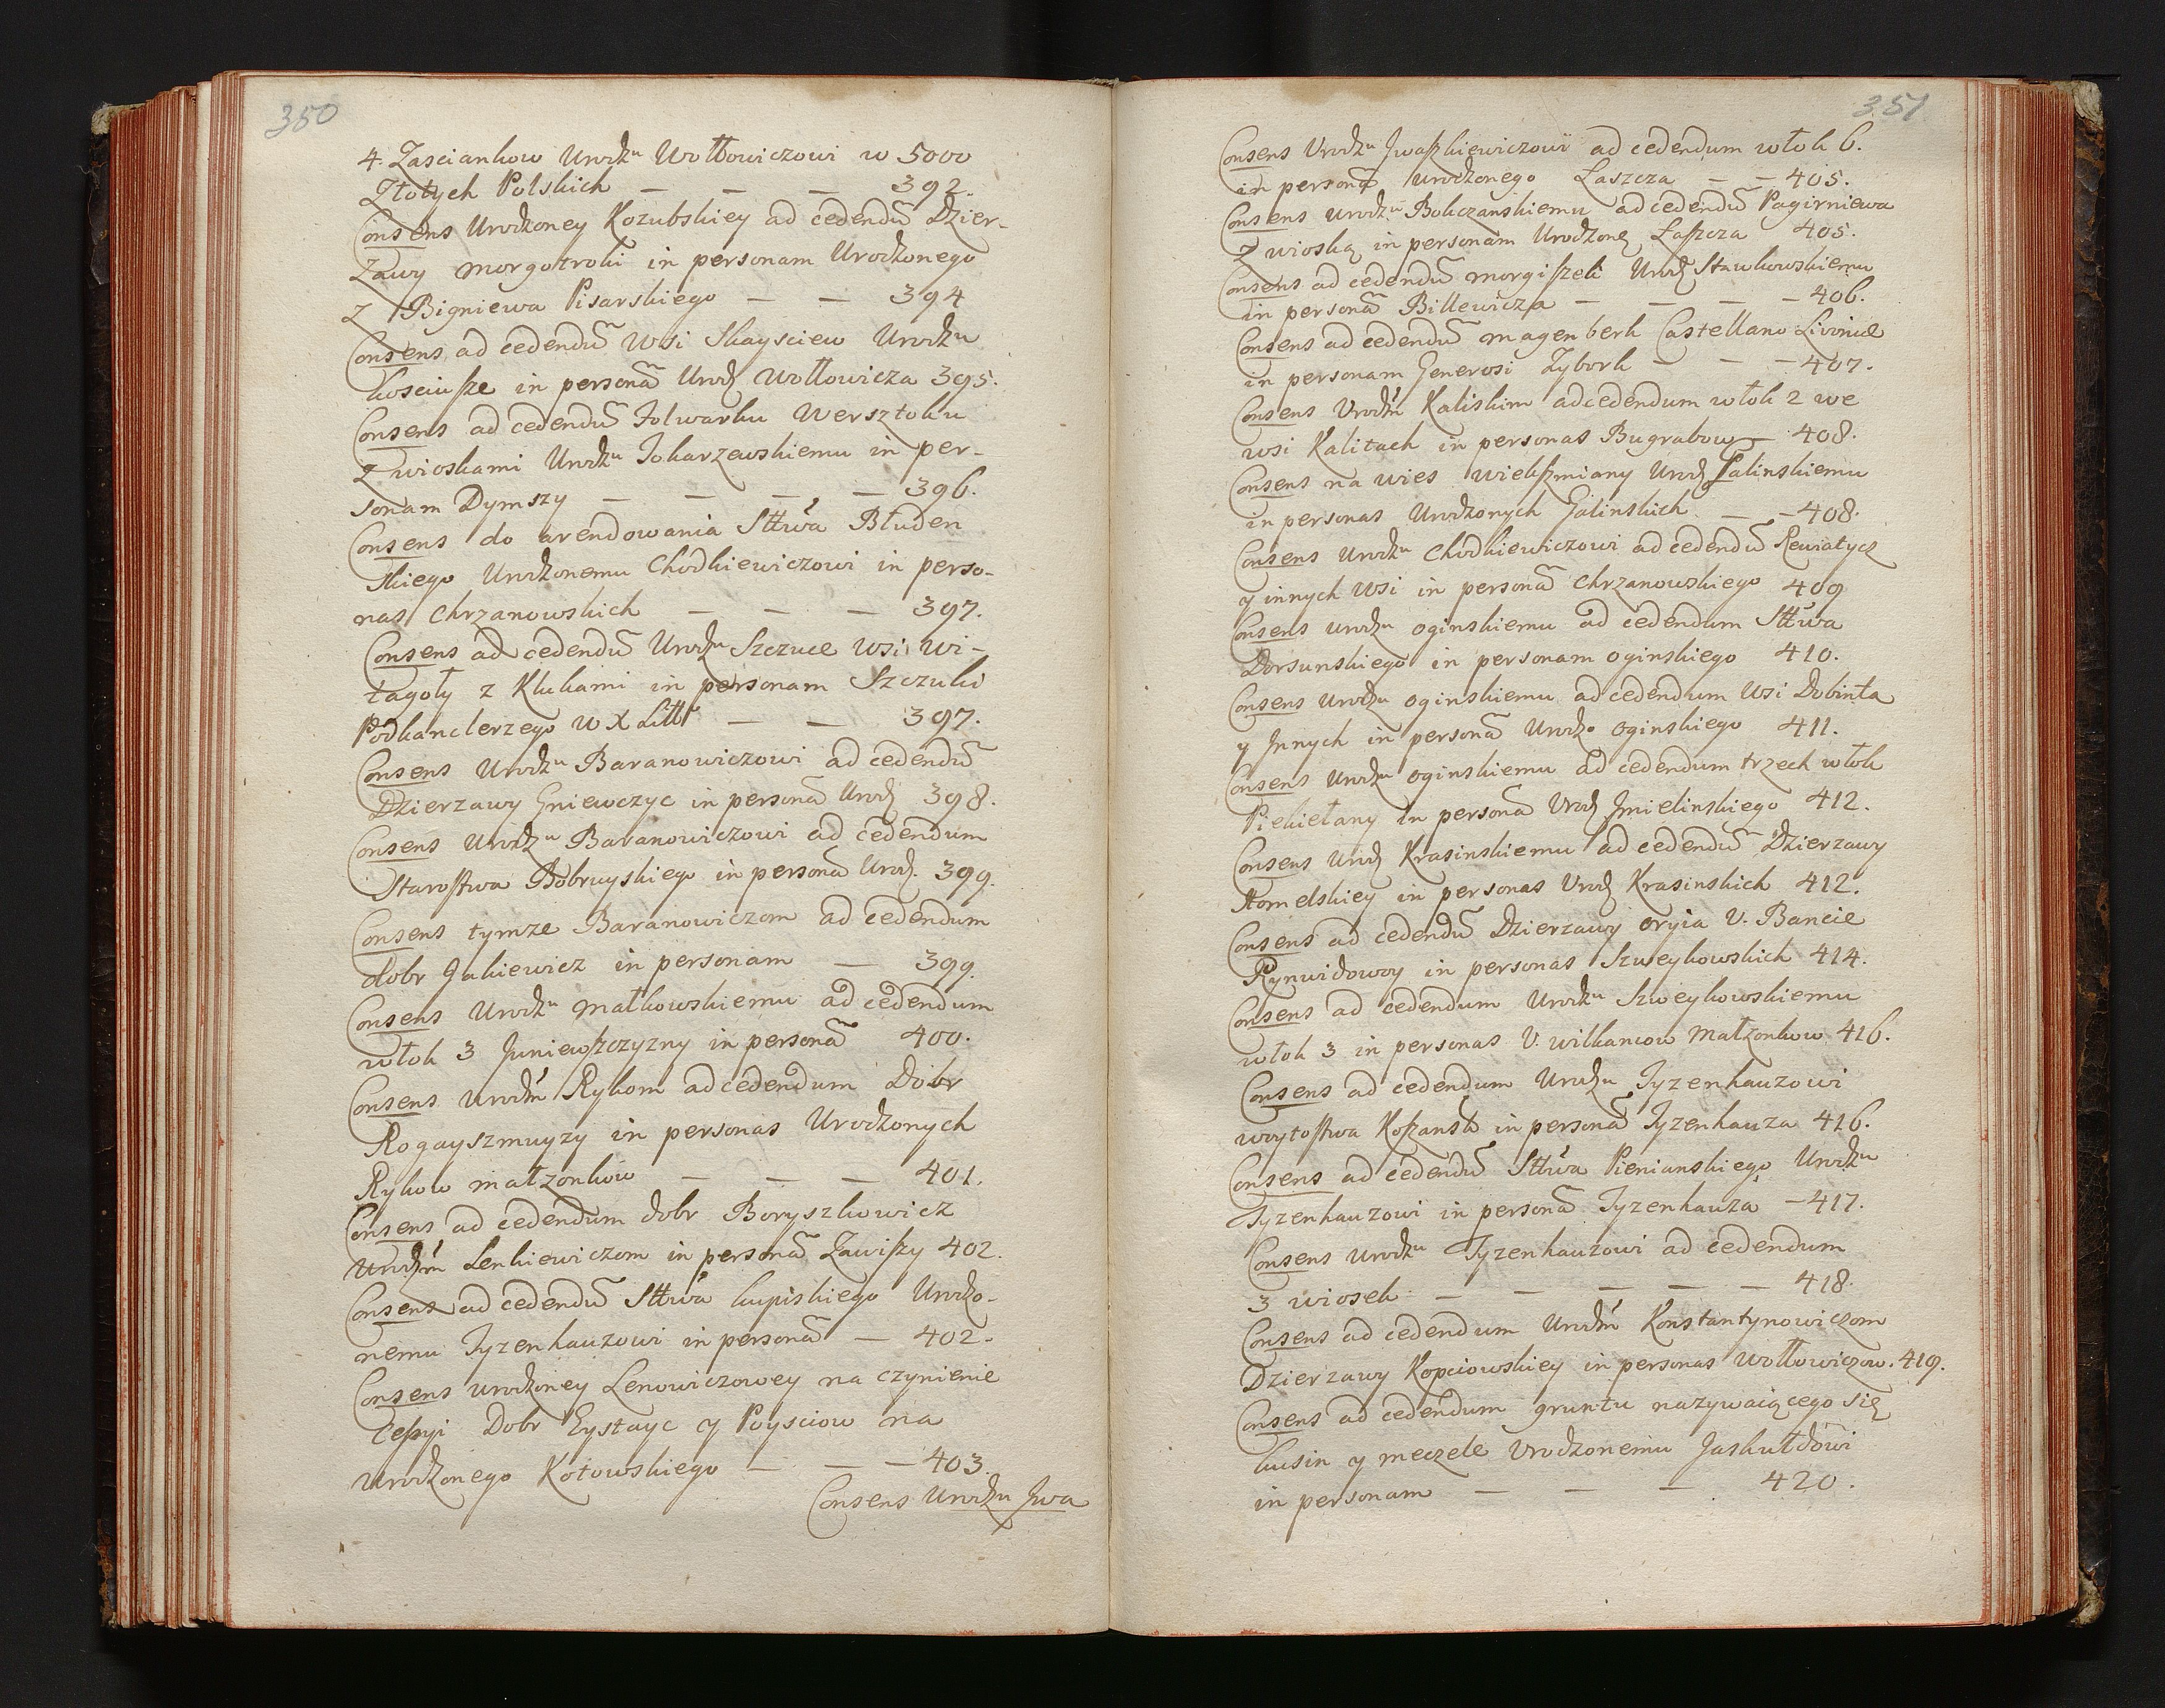 350
4. Zasciankow Urodzu Wołłowiczowi w 5000
Złotych Polskich — — — 392.
Consens Urodzoney Kozubskiey ad cedendũ Dzier-
zawy morgotroki in personam Urodzonego
z Bigniewa Pisarskiego — — 394
Consens ad cedendũ Wsi Skaysciew Urodzu
kosciusze in personã Urodz Wołłowicza 395.
Consens ad cedendũ Folwarku Wersztoku
z wioskami Urodzu Tokarzewskiemu in per-
sonam Dymszy — — — — 396.
Consens do arendowania Sttwa Błuden
skiego Urodzonemu Chodkiewiczowi in perso-
nas Chrzanowskich — — — 397.
Consens ad cedendũ Urodzu Szczuce wsi Wi-
łagoły z Klukami in personam Szczuki
Podkanclerzego W X Litt — — 397.
Consens Urodzu Baranowiczowi ad cedendũ
Dzierzawy Gniewczyc in personã Urodz 398.
Consens Urodzu Baranowiczowi ad cedendum
Starostwa Bobruyskiego in personã Urodz. 399.
Consens tymze Baranowiczom ad cedendum
dobr Jakiewicz in personam — 399.
Consens Urodzu Małkowskiemu ad cedendum
włok 3 Juniewszczyzny in personã 400.
Consens Urodzm Rykom ad cedendum Dobr
Rogayszmuyzy in personas Urodzonych
Rykow małzonkow — — — 401.
Consens ad cedendum dobr Boryszkowicz
Urodzm Lenkiewiczom in personã Zawiszy 402.
Consens ad cedendũ Sttwa kupiskiego Urodzo-
nemu Tyzenhauzowi in personã — 402.
Consens urodzoney Lenowiczowey na czynienie
cessyi Dobr Eystayc y Poysciow na
urodzonego Kotowskiego — — — 403.
Consens Urodzu Jwa
351
Consens Vrodzu Jwaszkiewiczowi ad cedendum włok 6.
in personã urodzonego Łaszcza — — 405.
Consens urodzu Bokczanskiemu ad cedendũ Pagirniewa
z wioską in personam Urodzone Łaszcza 405.
Consens ad cedendũ morgiszeli Urodz Stawkowskiemu
in personã Billewicza — — — — 406.
Consens ad cedendũ magenberk Castellano Livoniæ
in personam Generosi Zybork — — — 407.
Consens Vrodzm Kaliskim ad cedendum włok 2 we
wsi Kalitach in personas Bugrabow — 408.
Consens na wies wielkszmiany Urodz Palinskiemu
in personas Urodzonych Galinskich — — 408.
Consens Urodzu Chodkiewiczowi ad cedendũ Rewiatycz
y innych Wsi in personã Chrzanowskiego 409
Consens urodzu oginskiemu ad cedendum Sttwa
Dorsunskiego in personam oginskiego 410.
Consens Urodzu oginskiemu ad cedendum Wsi Dobinta
y Jnnych in personã Urodzo oginskiego 411.
Consens Urodzu oginskiemu ad cedendum trzech włok
Piekietany in personã Urodz Jmielinskiego 412.
Consens Urodz Krasinskiemu ad cedendũ Dzierzawy
Homelskiey in personas Urodz Krasinskich 412.
Consens ad cedendũ Dzierzawy oryia V. Bancie
Rynwidowoy in personas Szweykowskich 414.
Consens ad cedendum Urodzu Szweykowskiemu
włok 3 in personas V. wilkancow małzonkow 416.
Consens ad cedendum Urodzu Tyzenhauzowi
woytostwa Koszansk in personã Tyzenhauza 416.
Consens ad cedendũ Sttwa Pienianskiego Urodzu
Tyzenhauzowi in personã Tyzenhauza — 417.
Consens urodzu Tyzenhauzowi ad cedendum
3 wiosek — — — — — 418.
Consens ad cedendum Urodzm Konstantynowiczom
Dzierzawy Kopciowskiey in personas Wołłowiczow. 419.
Consens ad cedendum gruntu nazywaiącego się
kusin y meczele Vrodzonemu Jaskułdowi
in personam — — — 420.